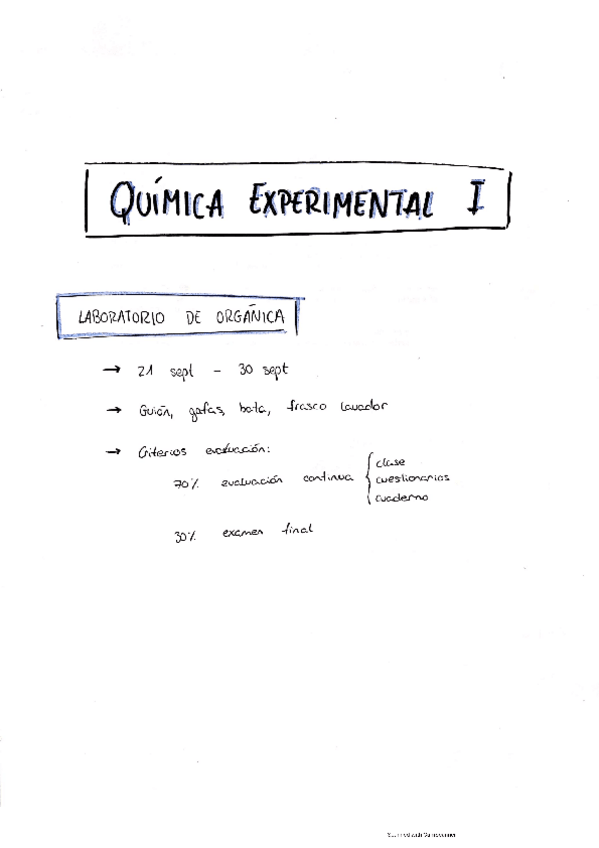 QUÍMICA EXPERIMENTAL I
LABORATORIO DE ORGÁNICA
→ 21 sept - 30 sept
→ Guión, gafas, bata, frasco lavador
→ Criterios evaluación:
70% evaluación continua { clase
cuestionarios
cuaderno
30% examen final
Scanned with CamScanner